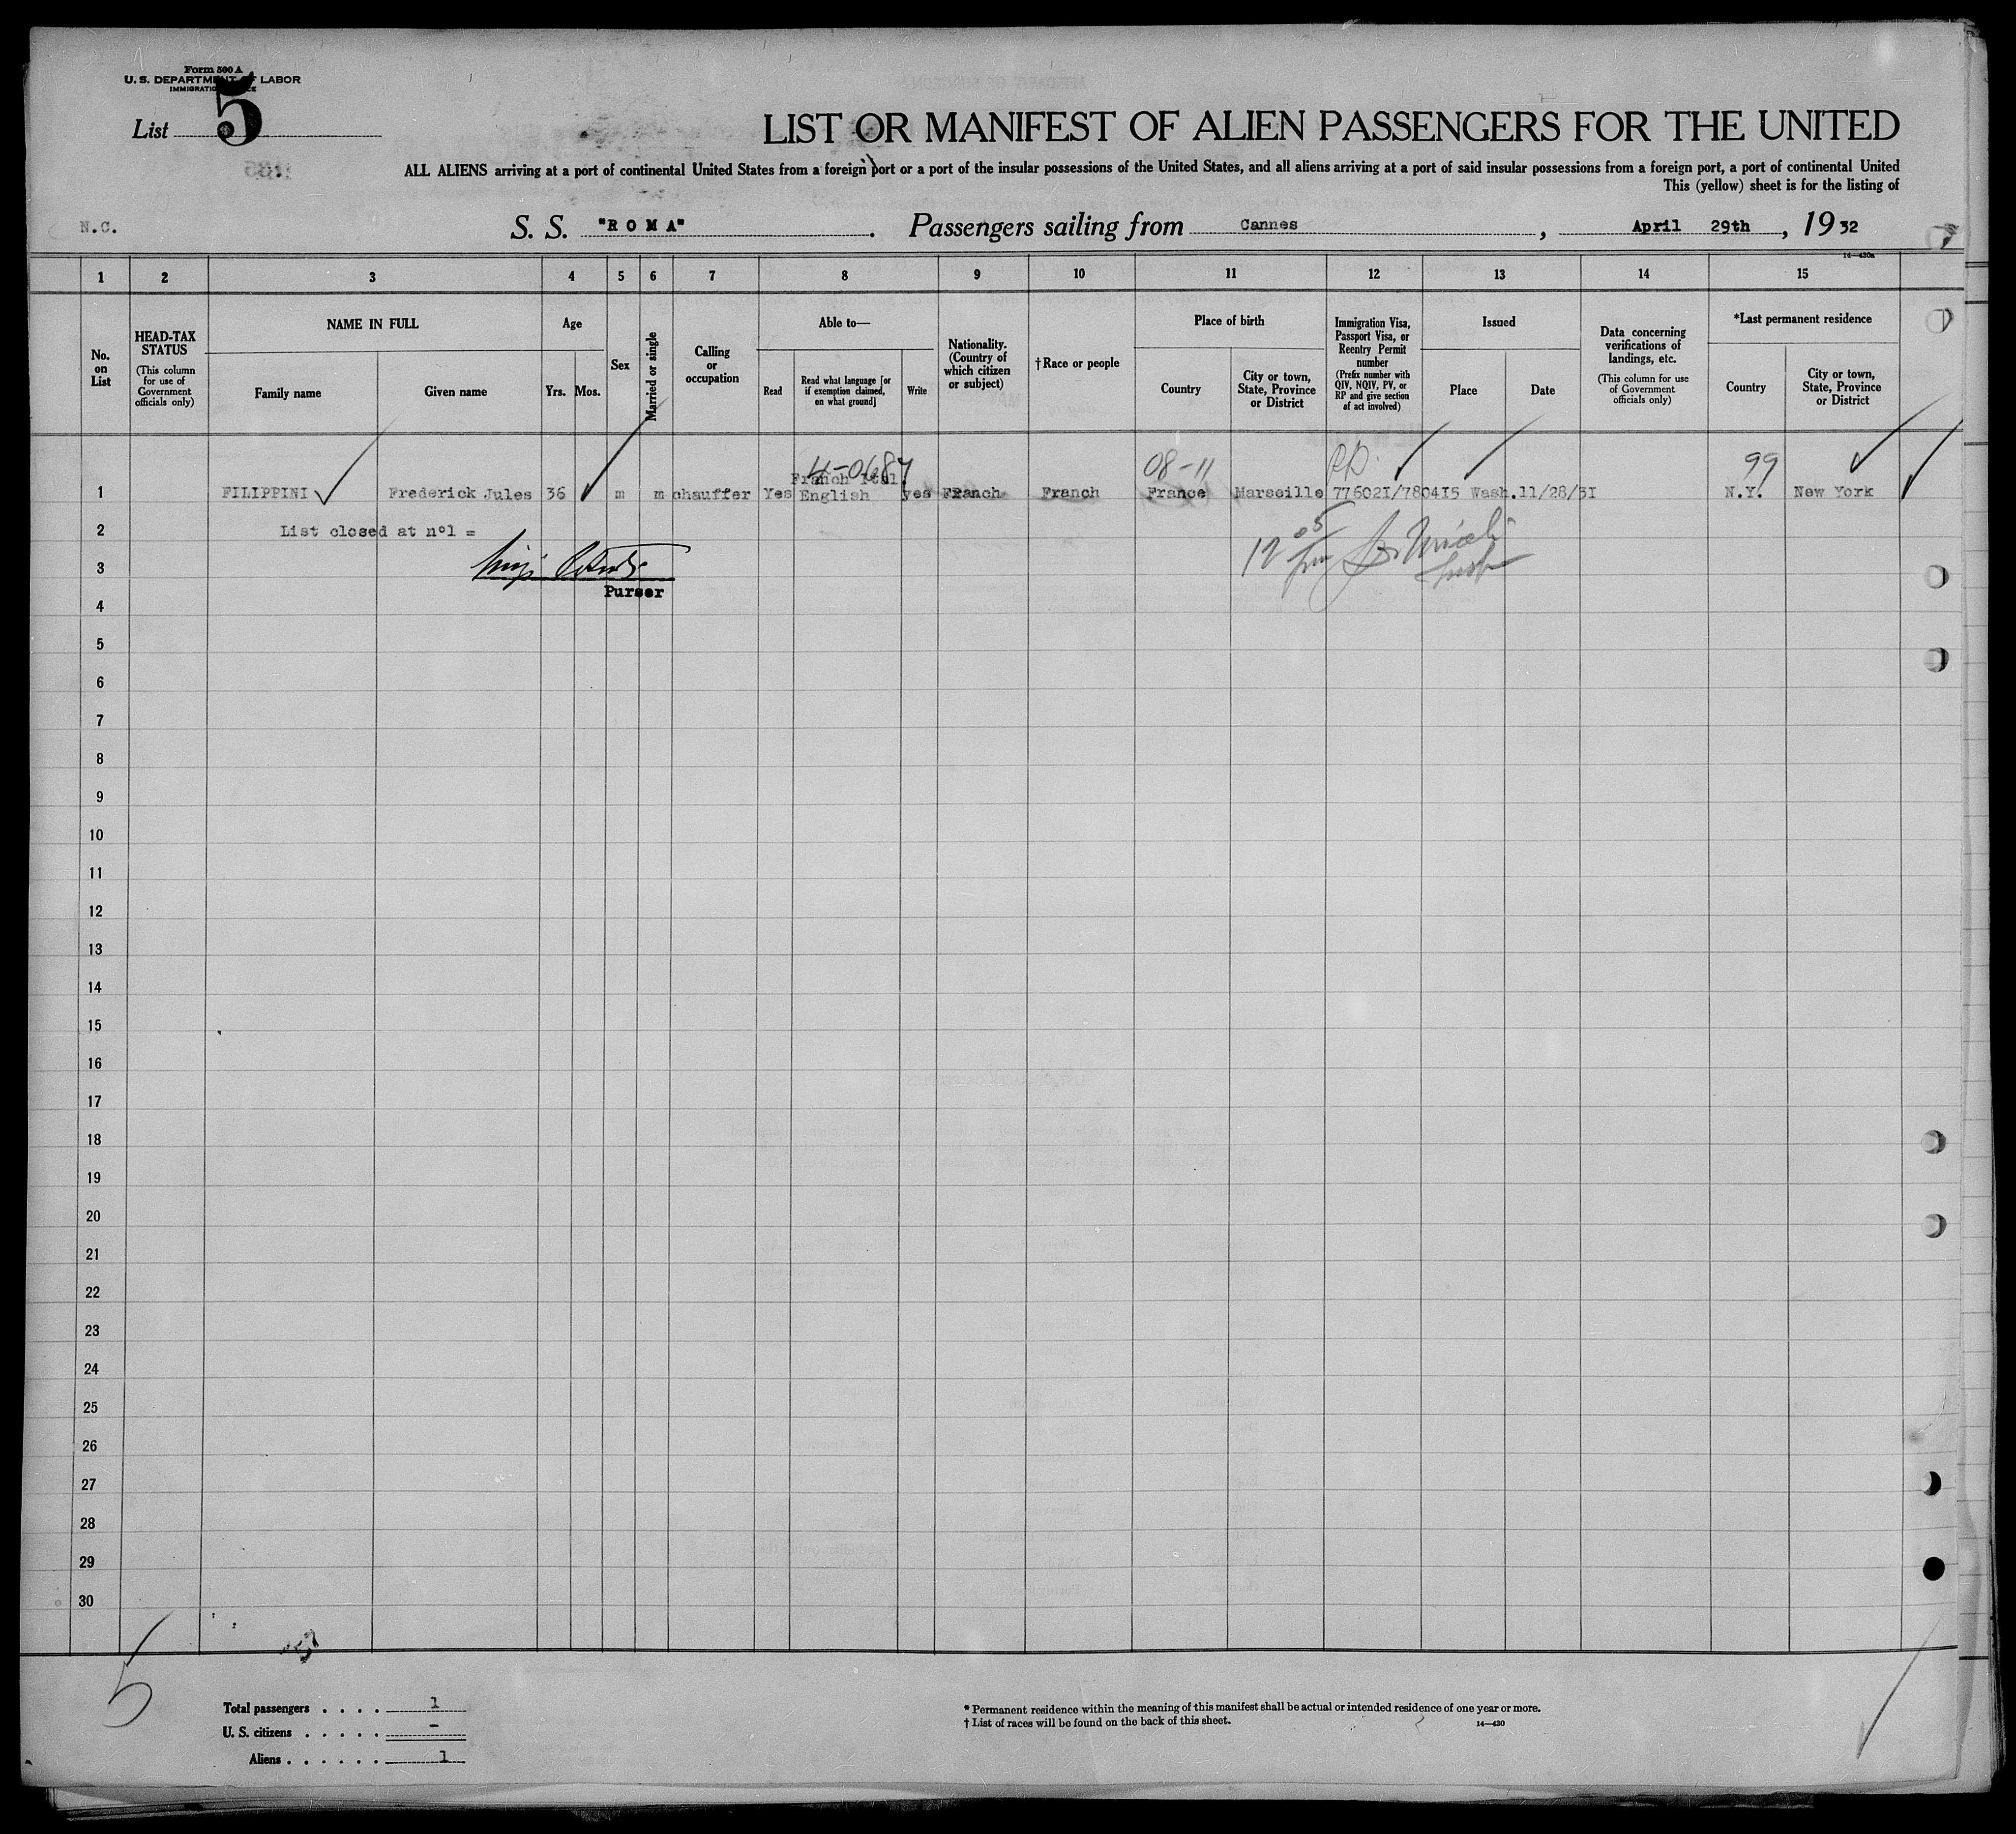 Form 500 A
U. S. DEPARTMENT OF LABOR
IMMIGRATION SERVICE
List 5
LIST OR MANIFEST OF ALIEN PASSENGERS FOR THE UNITED
ALL ALIENS arriving at a port of continental United States from a foreign port or a port of the insular possessions of the United States, and all aliens arriving at a port of said insular possessions from a foreign port, a port of continental United
This (yellow) sheet is for the listing of
N.C.
S. S. "ROMA". Passengers sailing from Cannes, April 29th, 1932
14—430a
1 2 3 4 5 6 7 8 9 10 11 12 13 14 15
No. on List
HEAD-TAX STATUS
(This column for use of Government officials only)
NAME IN FULL
Family name
Given name
Age
Yrs.
Mos.
Sex
Married or single
Calling or occupation
Able to—
Read
Read what language [or if exemption claimed, on what ground]
Write
Nationality. (Country of which citizen or subject)
† Race or people
Place of birth
Country
City or town, State, Province or District
Immigration Visa, Passport Visa, or Reentry Permit number
(Prefix number with QIV, NQIV, PV, or RP and give section of act involved)
Issued
Place
Date
Data concerning verifications of landings, etc.
(This column for use of Government officials only)
*Last permanent residence
Country
City or town, State, Province or District
4-0687 08-11 99
Franch Ital.
1 FILIPPINI Frederick Jules 36 m m chauffer Yes English yes Franch Franch France Marseille 776021/780415 Wash. 11/28/31 N.Y. New York
2 List closed at n°1 =
3
Purser
4
5
6
7
8
9
10
11
12
13
14
15
16
17
18
19
20
21
22
23
24
25
26
27
28
29
30
5
Total passengers . . . . 1
U. S. citizens . . . . . -
Aliens . . . . . . 1
* Permanent residence within the meaning of this manifest shall be actual or intended residence of one year or more.
† List of races will be found on the back of this sheet.
14—430